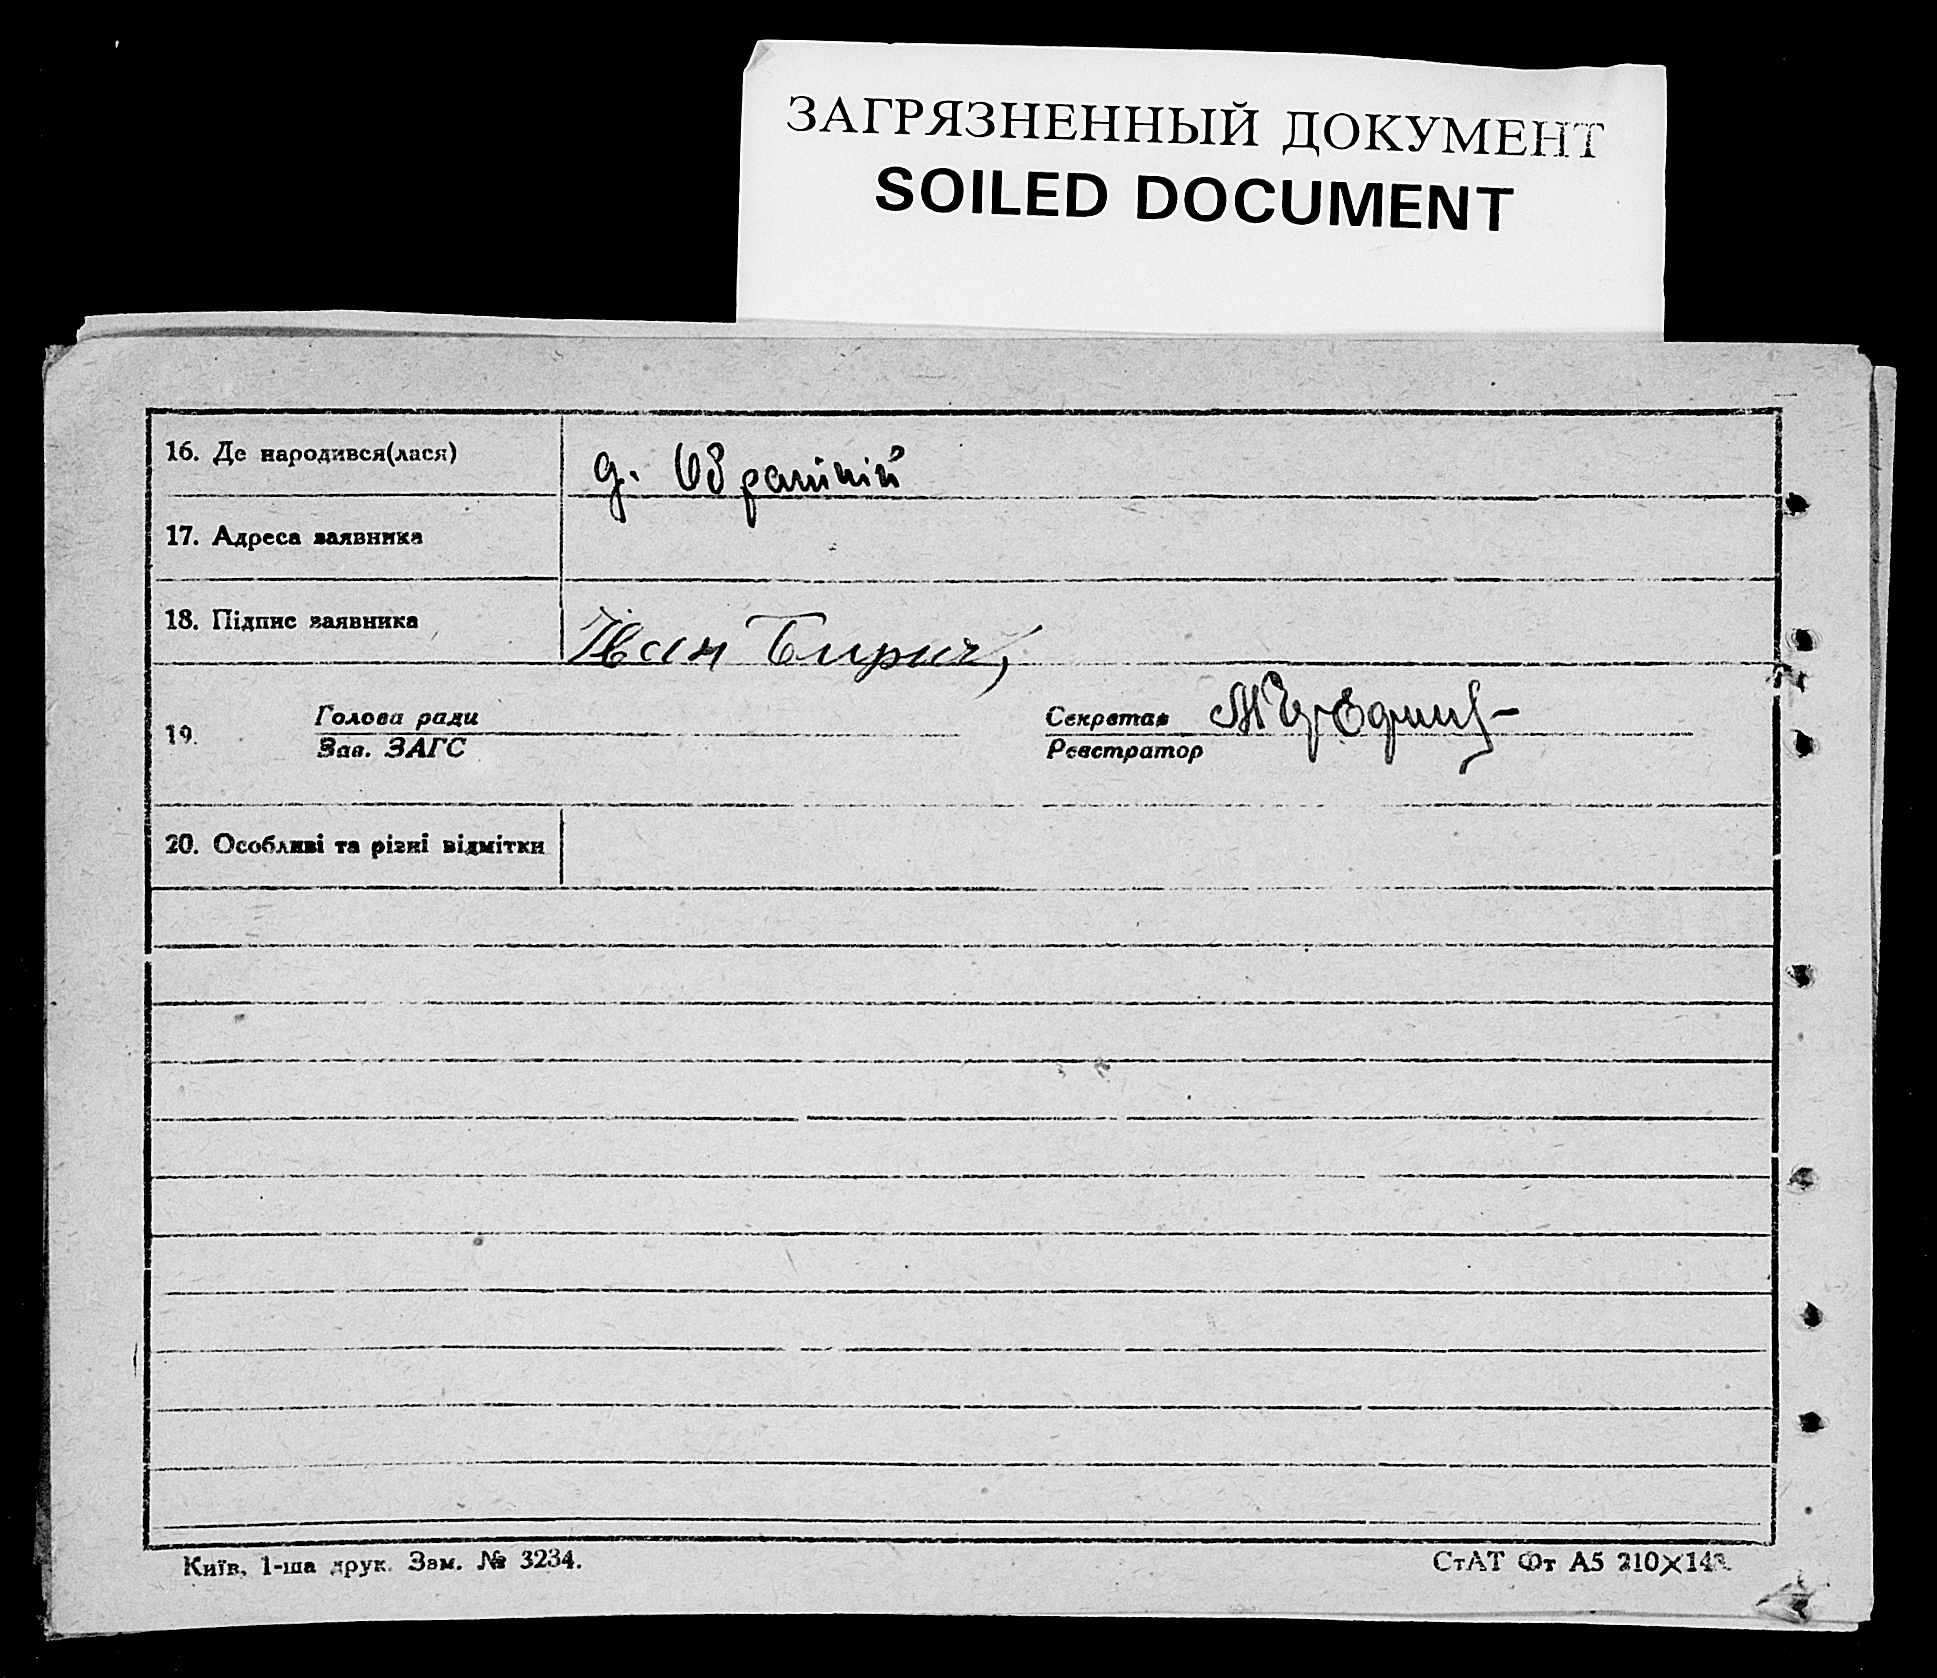 ЗАГРЯЗНЕННЫЙ ДОКУМЕНТ
SOILED DOCUMENT
16. Де народився(лася) д.
17. Адреса заявника
18. Підпис заявника Іван Бирич
19. Голова ради Секретар
Зав. ЗАГС Реєстратор
20. Особливі та різні відмітки
Київ, 1-ша друк. Зам. № 3234. СтАТ Фт А5 210×148.